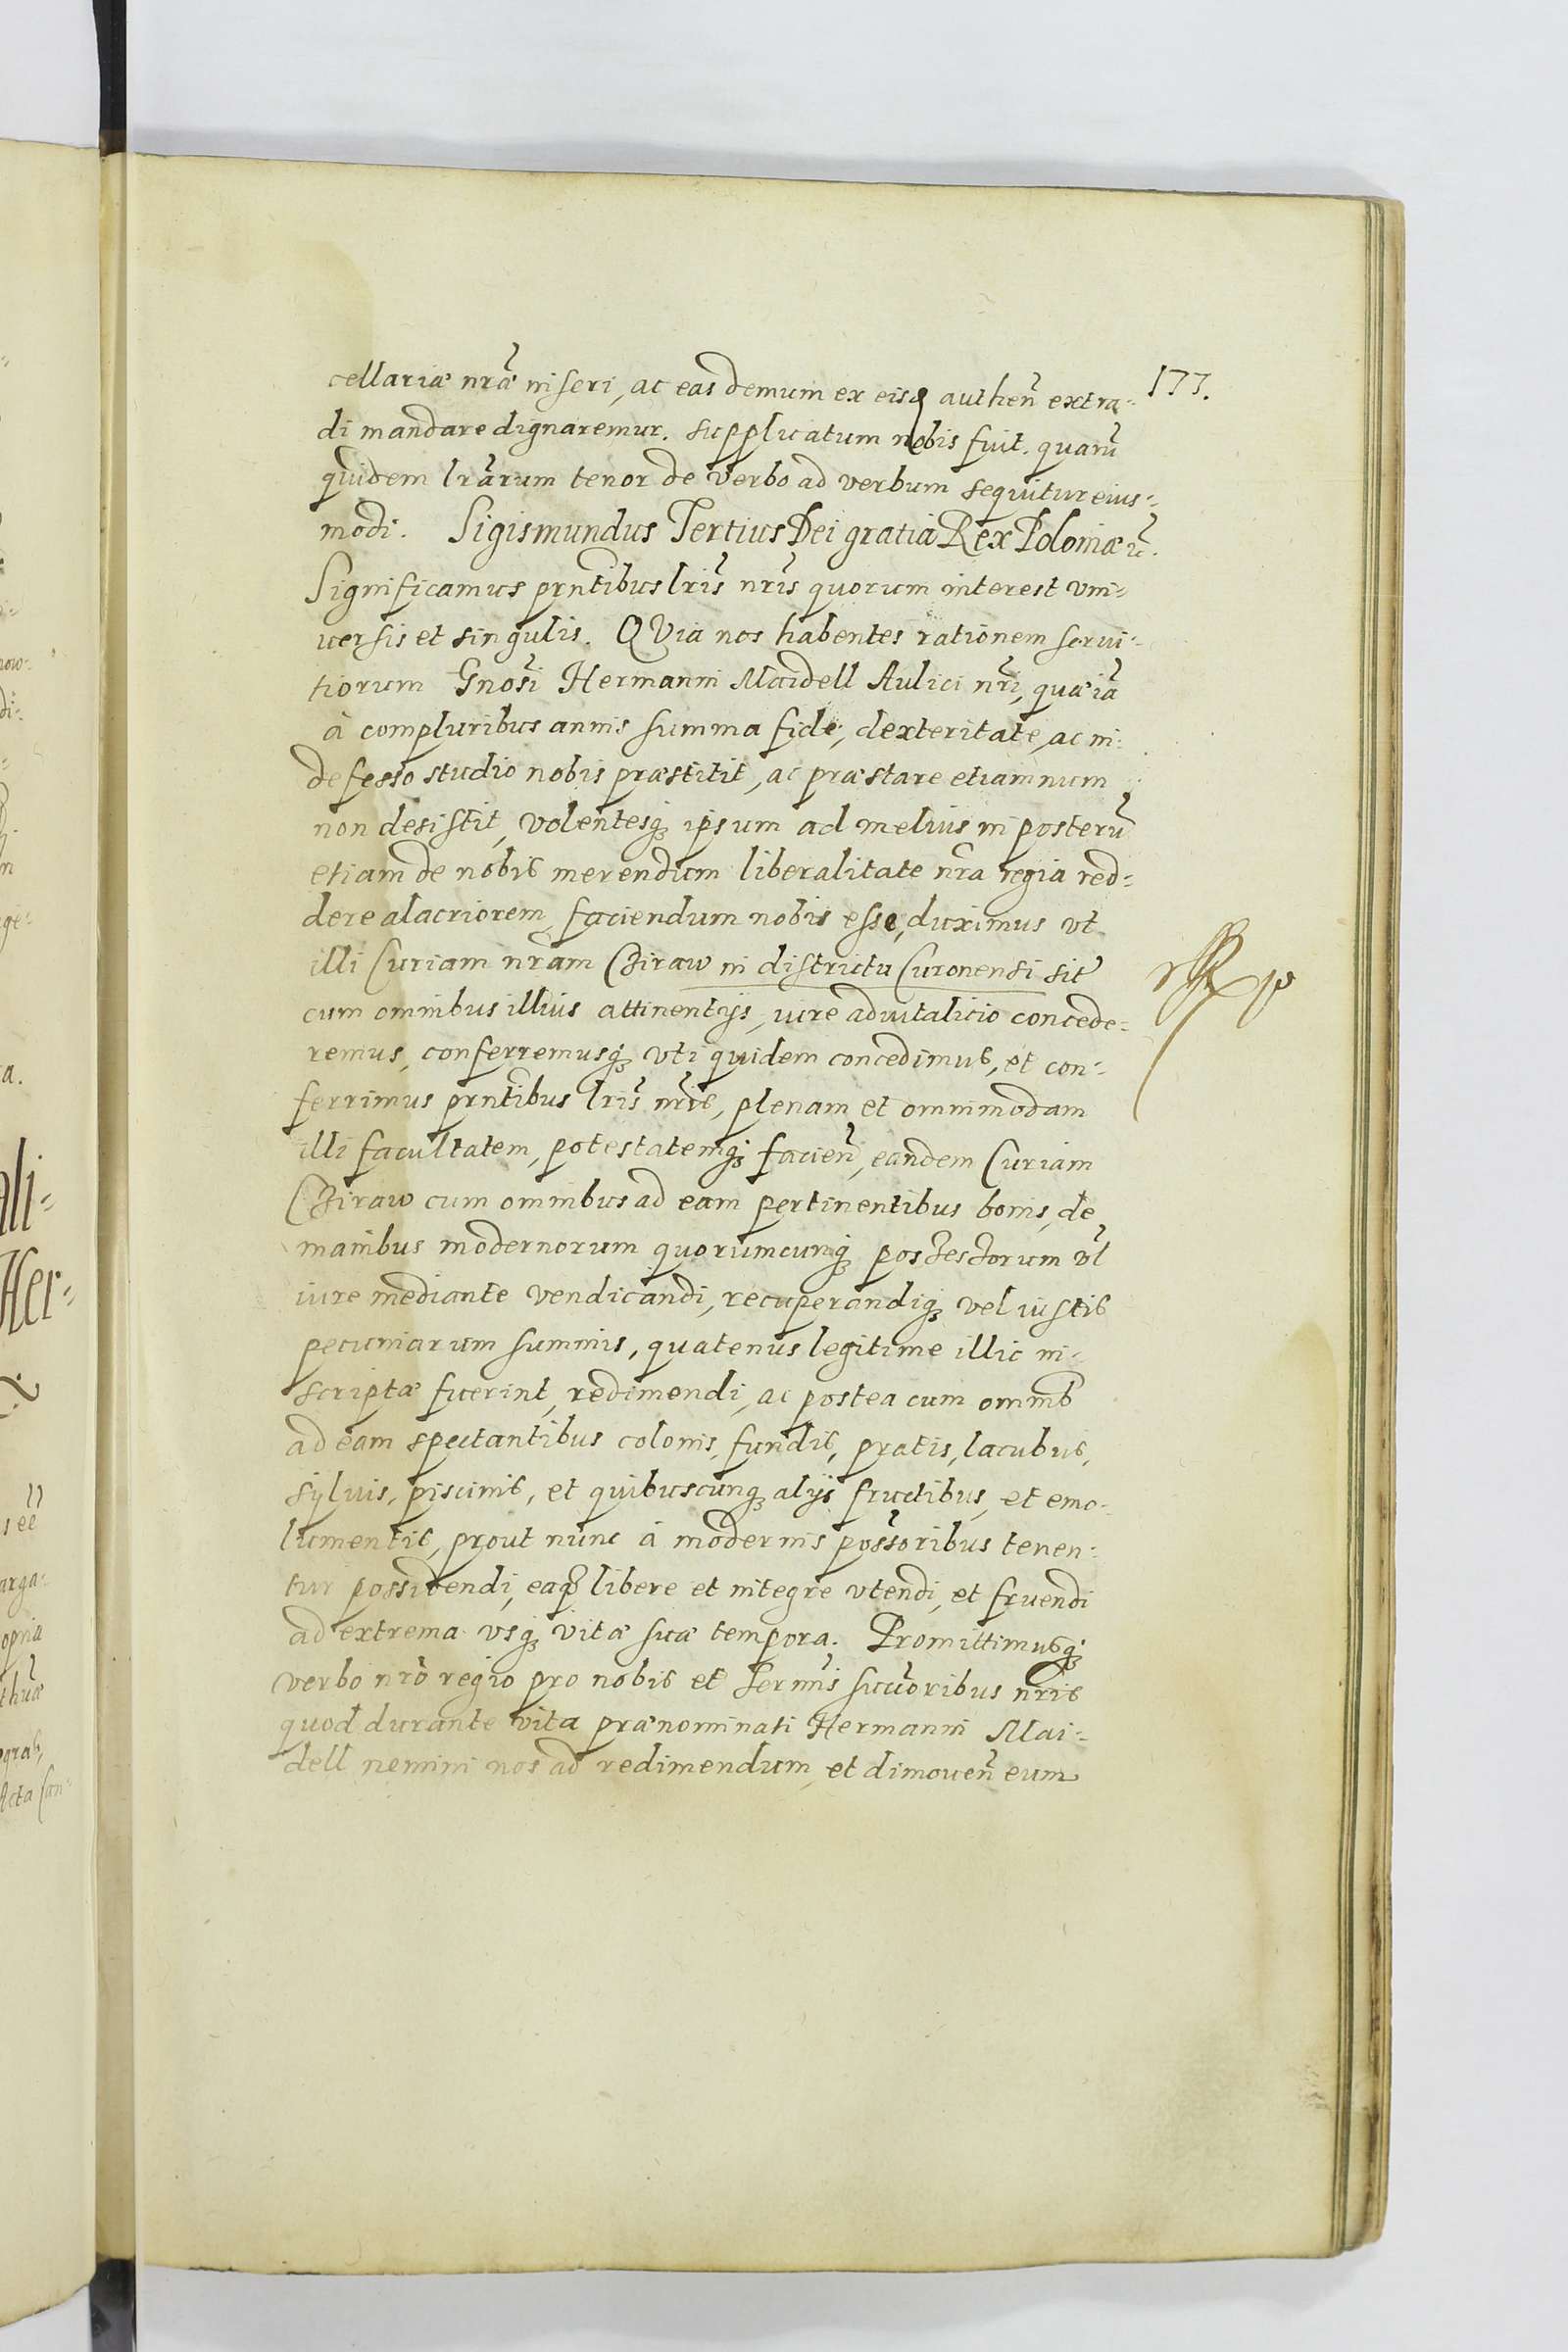 177.
cellariæ nr̃æ inseri, ac eas demum ex eisd authen̄ extra-
di mandare dignaremur. supplicatum nobis fuit. quarũ
quidem lr̃arum tenor de verbo ad verbum sequitur eius-
modi. Sigismundus Tertius Dei gratia Rex Poloniæ ꝛc̃.
Significamus prñtibus lr̃is nr̃is quorum interest vni-
uersis et singulis. QVia nos habentes rationem serui-
tiorum Gnosi Hermanni Maidell Aulici nr̃i, quæ iã
à compluribus annis summa fide, dexteritate, ac in-
defesso studio nobis præstitit, ac præstare etiamnum
non desistit, volentesqꝫ ipsum ad melius in posterũ
etiam de nobis merendum liberalitate nr̃a regia red-
dere alacriorem, faciendum nobis esse, duximus vt
illi Curiam nr̃am Biraw in districtu Curonensi sit̃
cum omnibus illius attinentijs, iure aduitalicio concede-
remus, conferremusqꝫ vti quidem concedimus, et con-
ferrimus prñtibus lr̃is nr̃is, plenam et omnimodam
illi facultatem, potestatemqꝫ facien̄, eandem Curiam
Biraw cum omnibus ad eam pertinentibus bonis, de
manibus modernorum quorumcunqꝫ possessorum vl̃
iure mediante vendicandi, recuperandiqꝫ vel iustis
pecuniarum summis, quatenus legitime illic in-
scriptæ fuerint, redimendi, ac postea cum omnib
ad eam spectantibus colonis, fundis, pratis, lacubus,
syluis, piscinis, et quibuscunqꝫ alijs fructibus, et emo-
lumentis, prout nunc à modernis possoribus tenen-
tur possidendi, eaqꝫ libere et integre vtendi, et fruendi
ad extrema vsqꝫ vitæ suæ tempora. Promittimusqꝫ
verbo nr̃o regio pro nobis et Sermis succoribus nr̃is
quod durante vita prænominati Hermanni Mai-
dell nemini nos ad redimendum, et dimouen̄ eum